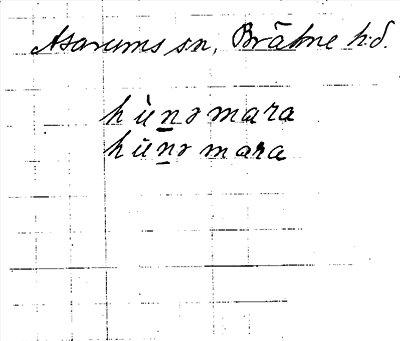 Asarums sn, Bräkne h.d.
hùn̲ə mara
hùn̲ə mara